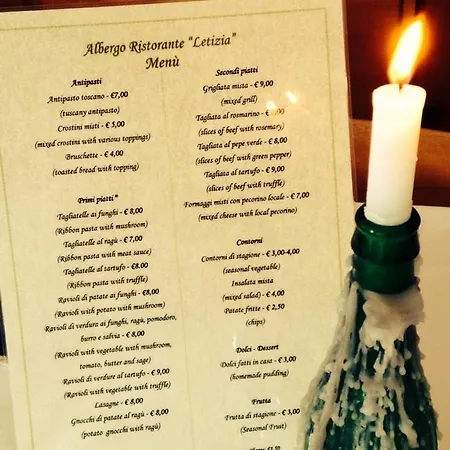 Albergo Ristorante "Letizia"
Menù
Antipasti
Antipasto toscano - €7,00
(tuscany antipasto)
Crostini misti - € 5,00
(mixed crostini with various toppings)
Bruschette - € 4,00
(toasted bread with topping)
Primi piatti"
Tagliatelle ai funghi - € 8,00
(Ribbon pasta with mushroom)
Tagliatelle al ragù - € 7,00
(Ribbon pasta with meat sauce)
Tagliatelle al tartufo - €8.00
(Ribbon pasta with truffle)
Ravioli di patate ai funghi - €8,00
(Ravioli with potato with mushroom)
Ravioli di verdura ai funghi, ragù, pomodoro,
burro e salvia - € 8,00
(Ravioli with vegetable with mushroom,
tomato, butter and sage)
Ravioli di verdure al tartufo - € 9,00
(Ravioli with vegetable with truffle)
Lasagne - € 8,00
Gnocchi di patate al ragù - € 8,00
(potato gnocchi with ragù)
Secondi piatti
Grigliata mista - € 9,00
(mixed grill)
Tagliata al rosmarino - €
(slices of beef with rosemary)
Tagliata al pepe verde - € 8,00
(slices of beef with green pepper)
Tagliata al tartufo - € 9,00
(slices of beef with truffle)
Formaggi misti con pecorino locale - € 7,00
(mixed cheese with local pecorino)
Contorni
Contorni di stagione - € 3,00-4,00
(seasonal vegetable)
Insalata mista
(mixed salad) - € 4,00
Patate fritte - € 2,50
(chips)
Dolci - Dessert
Dolci fatti in casa - € 3,00
(homemade pudding)
Frutta
Frutta di stagione - € 3,00
(Seasonal Frust)